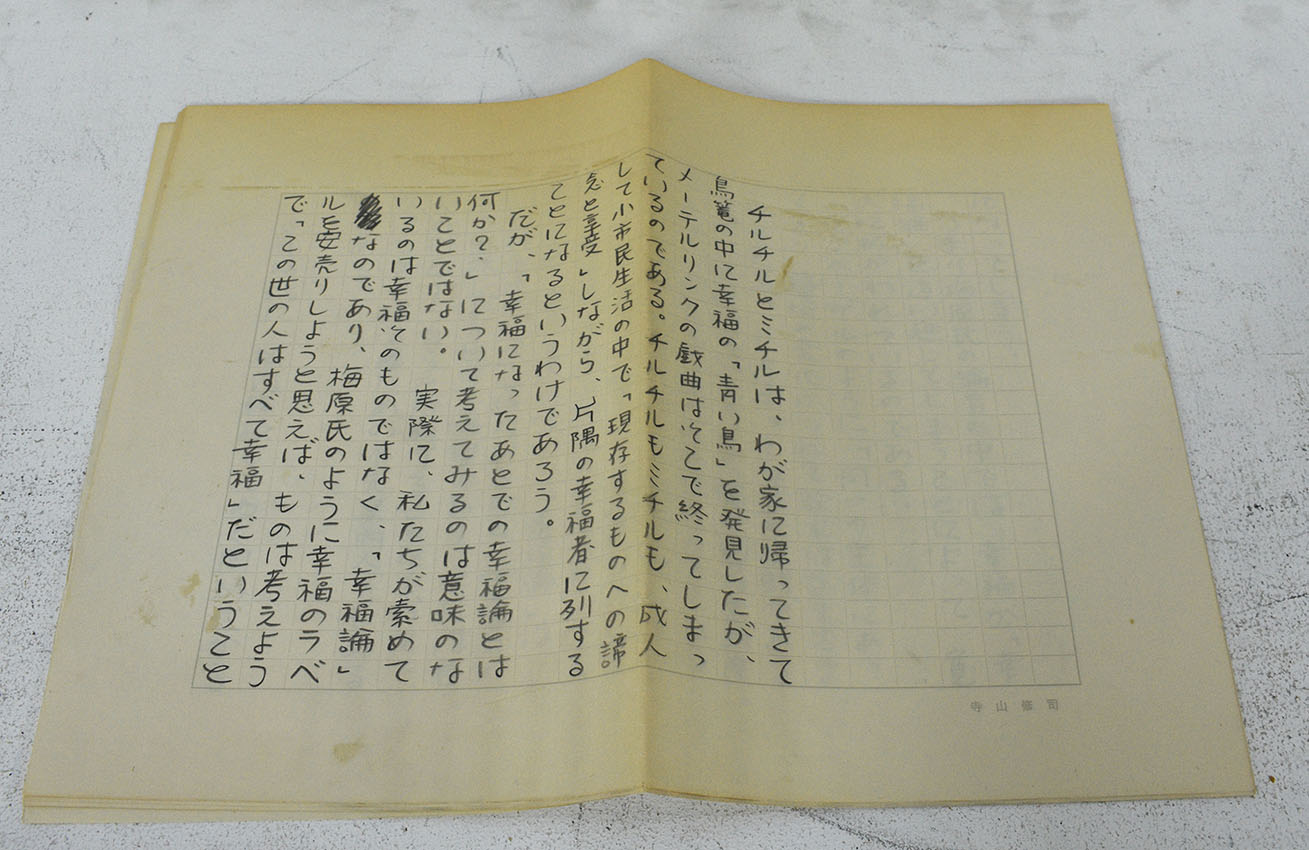 チルチルとミチルは、わが家に帰ってきて
鳥篭の中に幸福の「青い鳥」を発見したが、
メーテルリンクの戯曲はそこで終ってしまっ
ているのである。チルチルもミチルも、成人
して小市民生活の中で「現存するものへの諦
念と享受」しながら、片隅の幸福者に列する
ことになるというわけであろう。
だが、「幸福になったあとでの幸福論とは
何か?」について考えてみるのは意味のな
いことではない。実際に、私たちが索めて
いるのは幸福そのものではなく、「幸福論」
なのであり、梅原氏のように幸福のラベ
ルを安売りしようと思えば、ものは考えよう
で「この世の人はすべて幸福」だということ
寺山修司